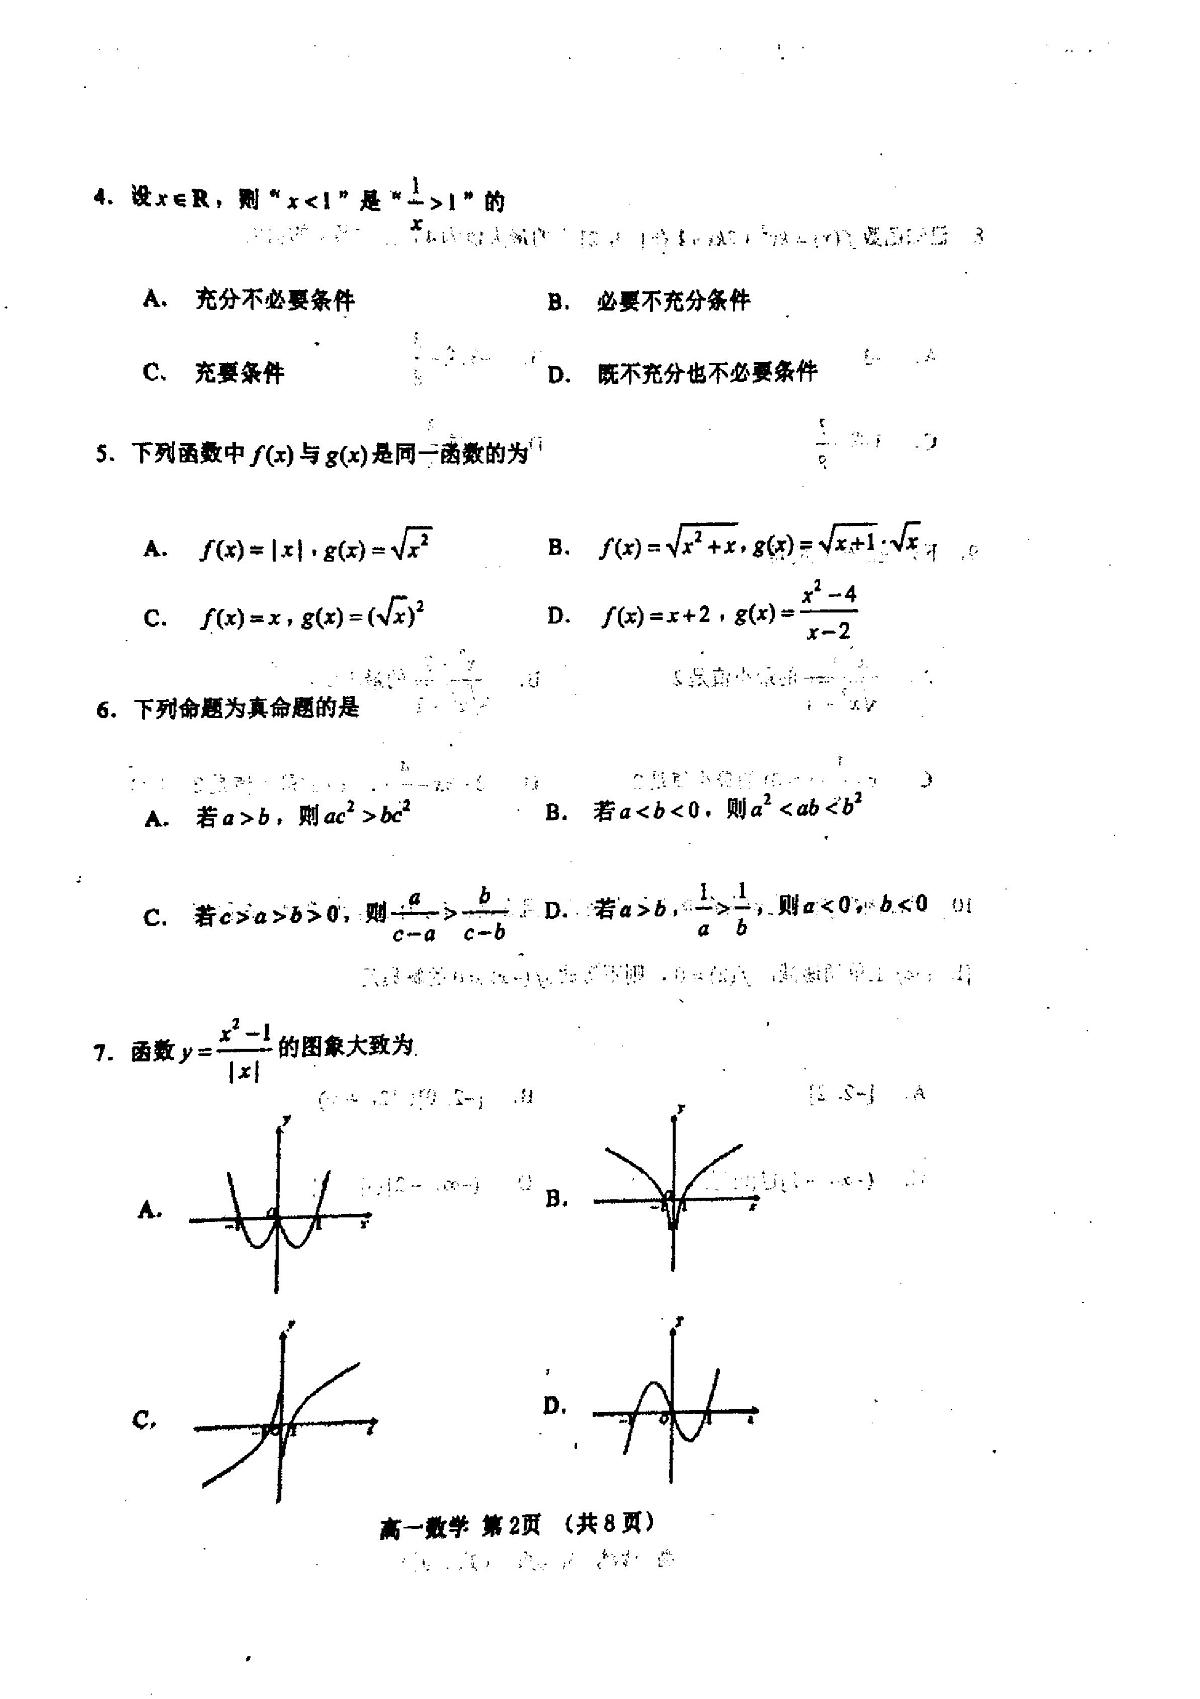 4. 设x∈R，则“x<1”是“1/x>1”的
A. 充分不必要条件 B. 必要不充分条件
C. 充要条件 D. 既不充分也不必要条件
5. 下列函数中f(x)与g(x)是同一函数的为
A. f(x)=|x|，g(x)=√(x²) B. f(x)=√(x²+x)，g(x)=√(x+1)·√x
C. f(x)=x，g(x)=(√x)² D. f(x)=x+2，g(x)=(x²-4)/(x-2)
6. 下列命题为真命题的是
A. 若a>b，则ac²>bc² B. 若a<b<0，则a²<ab<b²
C. 若c>a>b>0，则a/(c-a)>b/(c-b) D. 若a>b，1/a>1/b，则a<0，b<0
7. 函数y=(x²-1)/|x|的图象大致为
A. y -1 o 1 x B. y -1 o 1 x
C. y -1 o 1 x D. y -1 o 1 x
高一数学 第2页 （共8页）